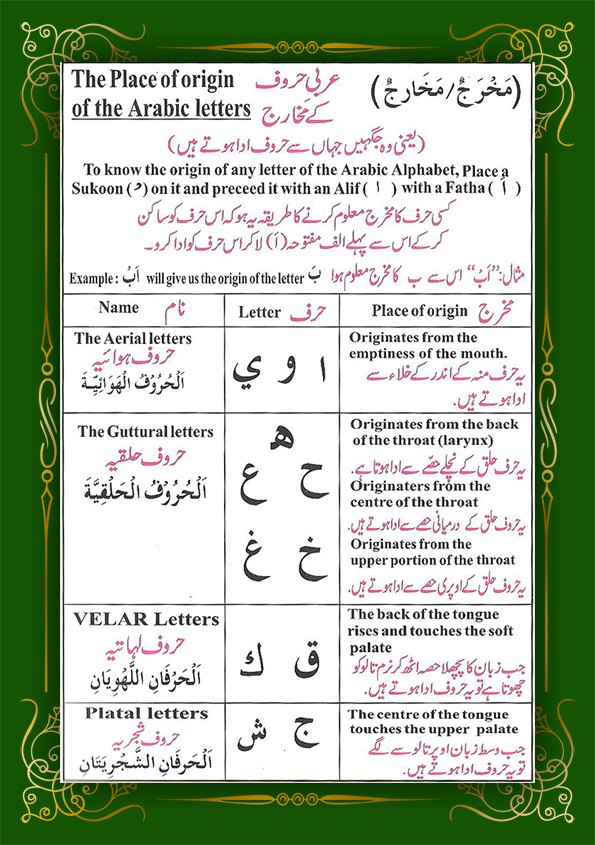 The Place of origin عربی حروف (مَخْرَجٌ/مَخَارِجٌ)
of the Arabic letters کے مَخارج
(یعنی وہ جگہیں جہاں سے حروف ادا ہوتے ہیں)
To know the origin of any letter of the Arabic Alphabet, Place a
Sukoon ( ْ ) on it and preceed it with an Alif ( ا ) with a Fatha ( اَ )
کسی حرف کا مخرج معلوم کرنے کا طریقہ یہ ہوکہ اس حرف کو ساکن
کرکے اس سے پہلے الف مفتوحہ (اَ) لا کر اس حرف کو ادا کرو۔
مثال: ”اَبْ“ اس سے ب کا مخرج معلوم ہوا
Example : اَبْ will give us the origin of the letter بَ
Name نام
Letter حرف
Place of origin مخرج
The Aerial letters
حروف ہوائیہ
اَلْحُرُوْفُ الْهَوَائِيَّةُ
ا و ي
Originates from the
emptiness of the mouth.
یہ حرف منہ کے اندر کے خلاء سے
ادا ہوتے ہیں.
The Guttural letters
حروف حلقیہ
اَلْحُرُوْفُ الْحَلْقِيَّةُ
ھ
ح ع
خ غ
Originates from the back
of the throat (larynx)
یہ حرف حلق کے نچلے حصّے سے ادا ہوتا ہے.
Originaters from the
centre of the throat
یہ حروف حلق کے درمیانی حصے سے ادا ہوتے ہیں.
Originates from the
upper portion of the throat
یہ حروف حلق کے اوپری حصے سے ادا ہوتے ہیں.
VELAR Letters
حروف لہاتیہ
اَلْحَرْفَانِ اللَّهْوِيَانِ
ق ك
The back of the tongue
rises and touches the soft
palate
جب زبان کا پچھلا حصہ اٹھ کر نرم تالو کو
چھوتا ہے تو یہ حروف ادا ہوتے ہیں.
Platal letters
حروف شجریہ
اَلْحَرفَانِ الشَّجْرِيَتَانِ
ج ش
The centre of the tongue
touches the upper palate
جب وسط زبان اوپر تالو سے لگے
تو یہ حروف ادا ہوتے ہیں.